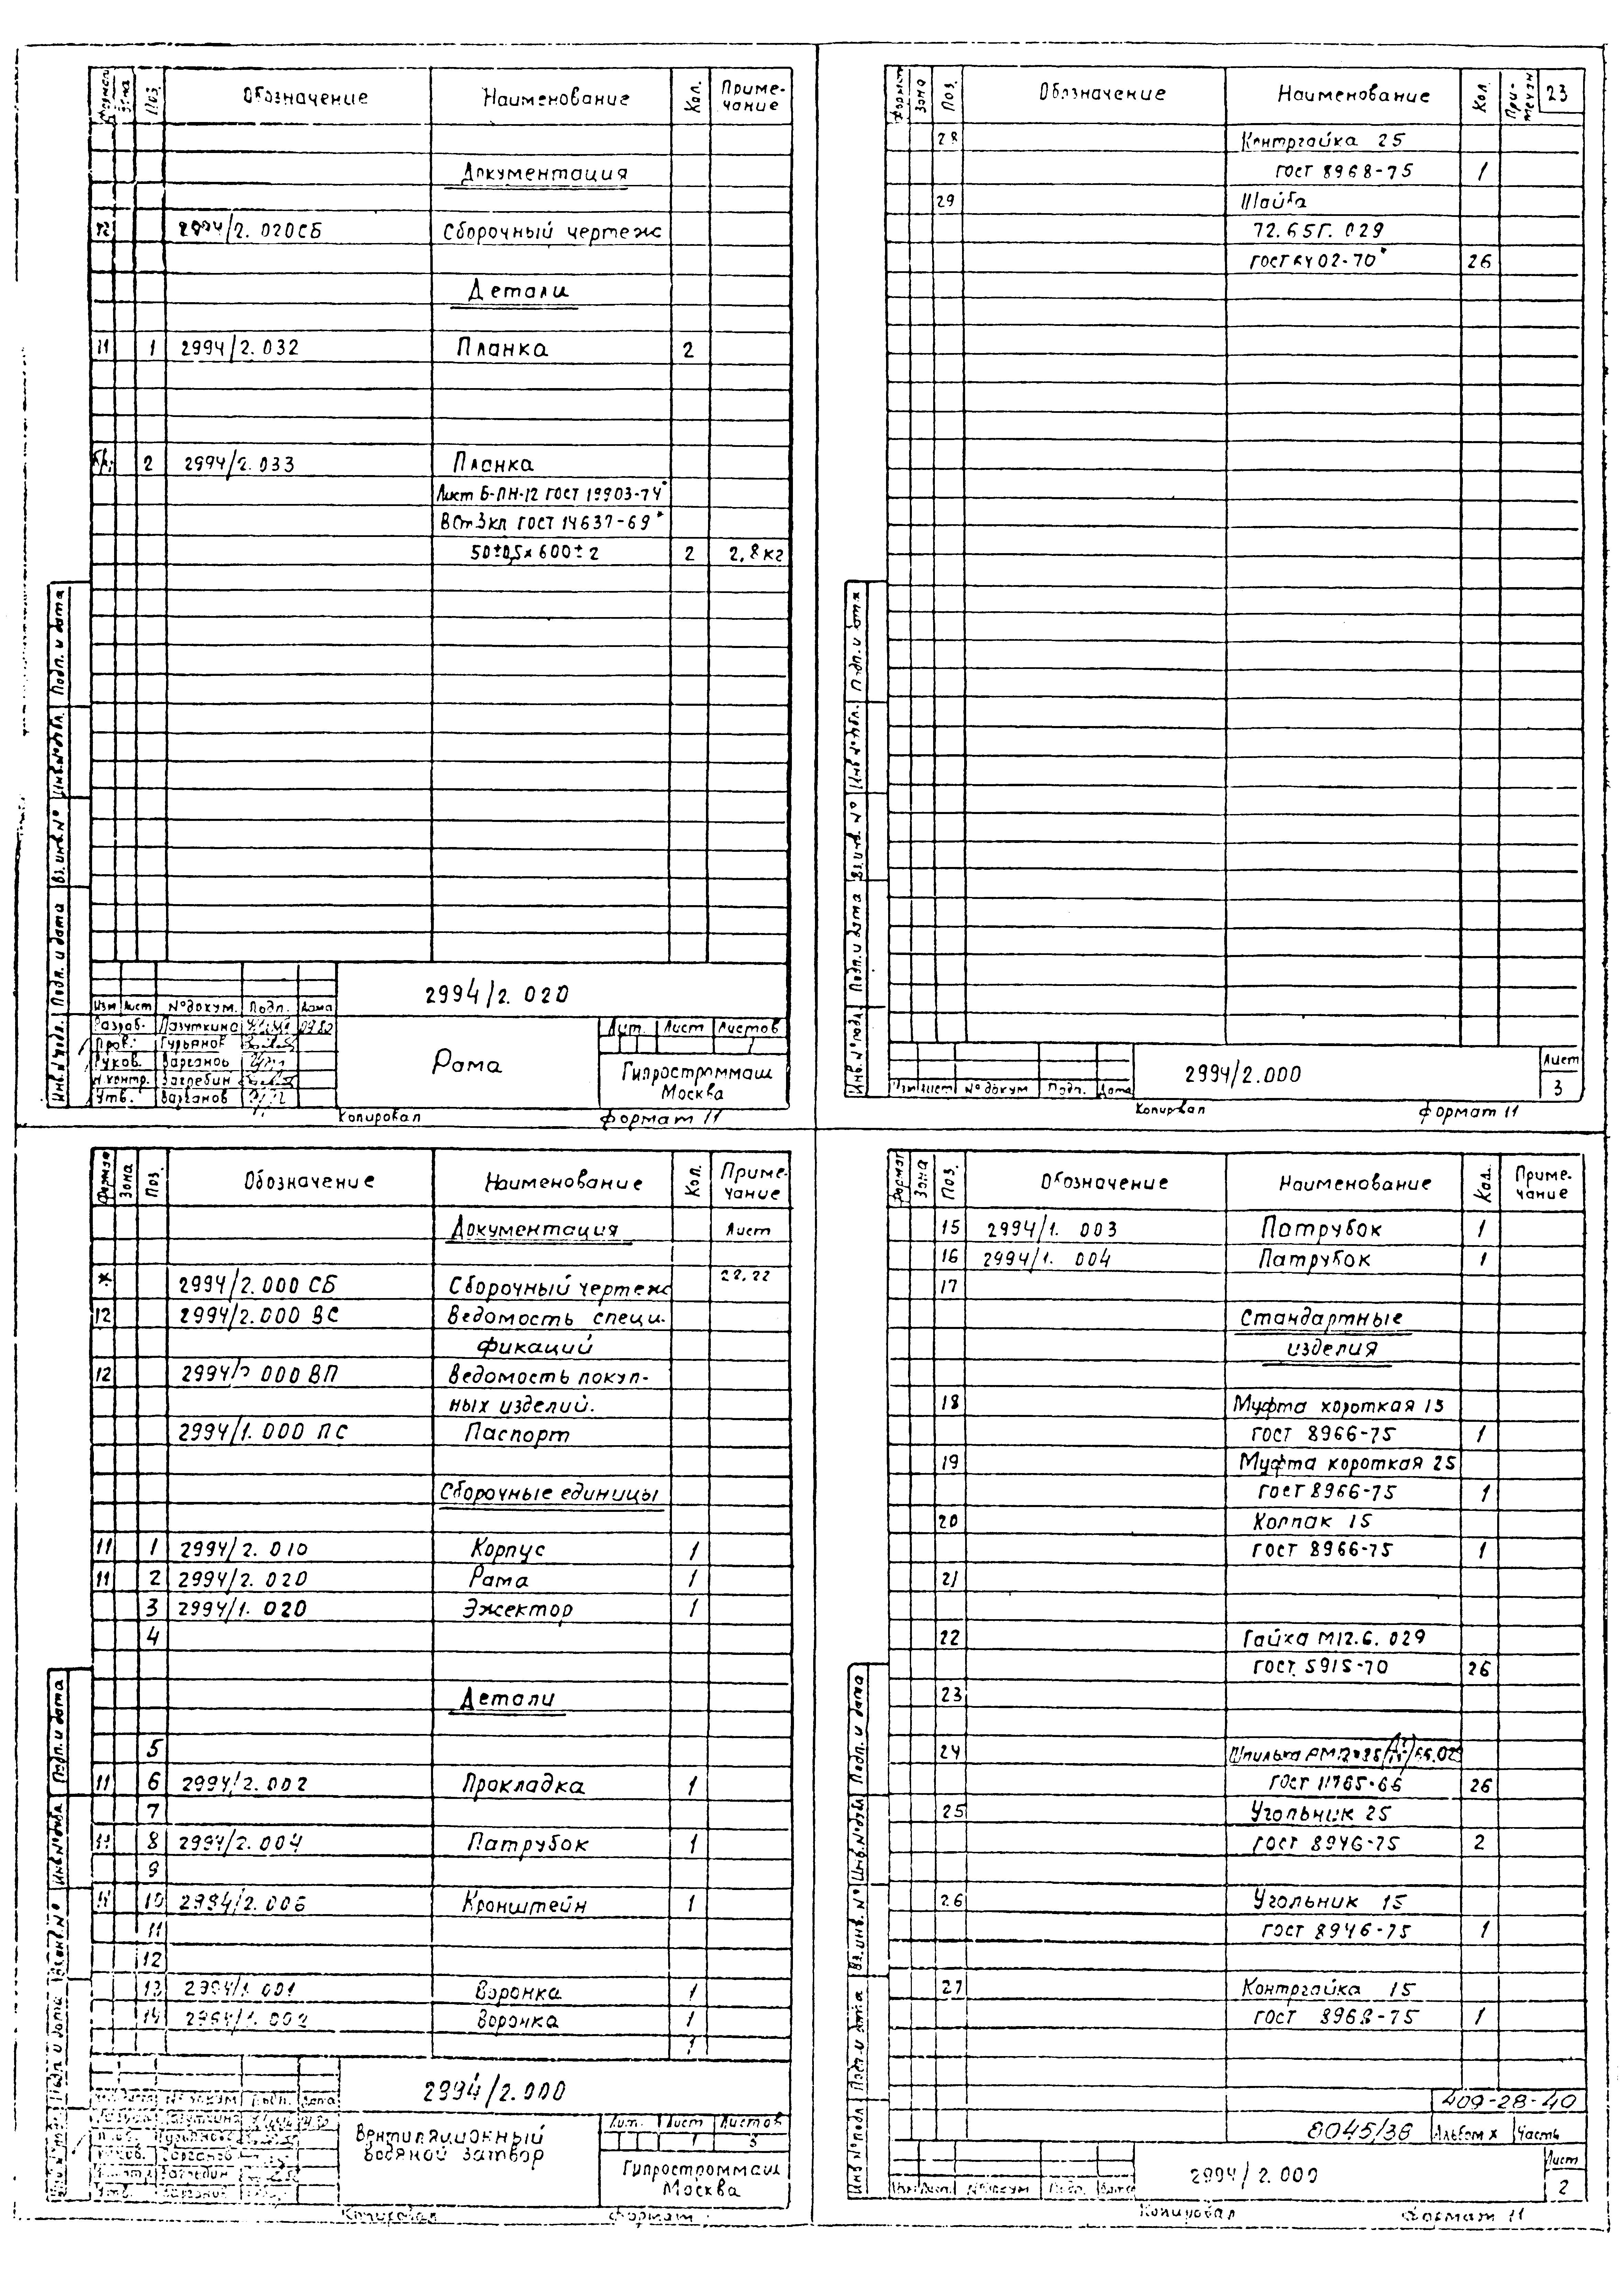 Формат Зона Поз. Обозначение Наименование Кол. Приме-
чание
Документация
12 2994/2. 020СБ Сборочный чертеж
Детали
11 1 2994/2. 032 Планка 2
2 2994/2. 033 Планка
Лист Б-ПН-12 ГОСТ 19903-74*
ВСт3кп ГОСТ 14637-69*
50±0,5х600±2 2 2,8кг
Подп. и дата
Инв.№дубл.
Вз. инв.№
Подп. и дата
Инв.№подл.
2994/2. 020
Изм Лист №докум. Подп. Дата
Разраб. Лазуткина
Пров. Гурьянов
Руков. Варганов
Н.контр. Загребин
Утв. Варганов
Рама
Лит. Лист Листов
1
Гипростроммаш
Москва
Копировал Формат 11
Формат Зона Поз. Обозначение Наименование Кол. При-
мечан 23
28 Контргайка 25
ГОСТ 8968-75 1
29 Шайба
72.65Г. 029
ГОСТ 6402-70* 26
Подп. и дата
Инв.№дубл.
Вз.инв. №
Подп. и дата
Инв.№подл.
Изм Лист №докум Подп. Дата
2994/2.000
Лист
3
Копировал Формат 11
Формат Зона Поз. Обозначение Наименование Кол. Приме-
чание
Документация Лист
* 2994/2.000 СБ Сборочный чертеж 22.22
12 2994/2.000 ВС Ведомость специ-
фикаций
12 2994/2 000 ВП Ведомость покуп-
ных изделий.
2994/1.000 ПС Паспорт
Сборочные единицы
11 1 2994/2. 010 Корпус 1
11 2 2994/2. 020 Рама 1
3 2994/1. 020 Эжектор 1
4
Детали
5
11 6 2994/2.002 Прокладка 1
7
11 8 2994/2.004 Патрубок 1
9
11 10 2994/2.006 Кронштейн 1
11
12
13 2994/1.001 Воронка 1
14 2994/1.002 Воронка 1
1
Подп. и дата
Инв.№дубл.
Вз.инв.№
Подп. и дата
2994/2.000
Изм Лист №докум Подп. Дата
Вентиляционный
водяной затвор
Лит. Лист Листов
1 3
Гипростроммаш
Москва
Копировал Формат
Формат Зона Поз. Обозначение Наименование Кол. Приме-
чание
15 2994/1. 003 Патрубок 1
16 2994/1. 004 Патрубок 1
17
Стандартные
изделия
18 Муфта короткая 15
ГОСТ 8966-75 1
19 Муфта короткая 25
ГОСТ 8966-75 1
20 Колпак 15
ГОСТ 8966-75 1
21
22 Гайка М12.6. 029
ГОСТ 5915-70 26
23
24 Шпилька
ГОСТ 11765-66 26
25 Угольник 25
ГОСТ 8946-75 2
26 Угольник 15
ГОСТ 8946-75 1
27 Контргайка 15
ГОСТ 8968-75 1
Подп. и дата
Инв.№дубл
Вз.инв. №
Подп. и дата
Инв №подл
409-28-40
8045/36 Альбом X Часть
Изм Лист №докум Подп. Дата
2994/2.000
Лист
2
Копировал Формат 11